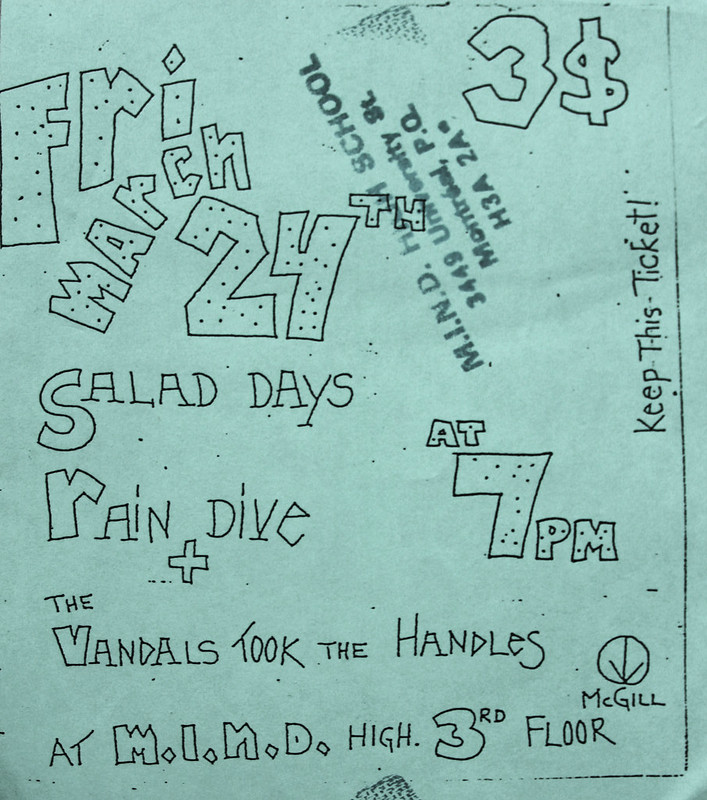 Fri
March
24TH
3$
M.I.N.D. HIGH SCHOOL
3449 University St.
Montréal, P.Q.
H3A 2A8
Keep This Ticket!
SALAD DAYS
AT
7PM
rAiN DiVe
+
THE
VANDALS TOOK THE HANDLES
McGILL
AT M.I.N.D. HIGH. 3RD FLOOR